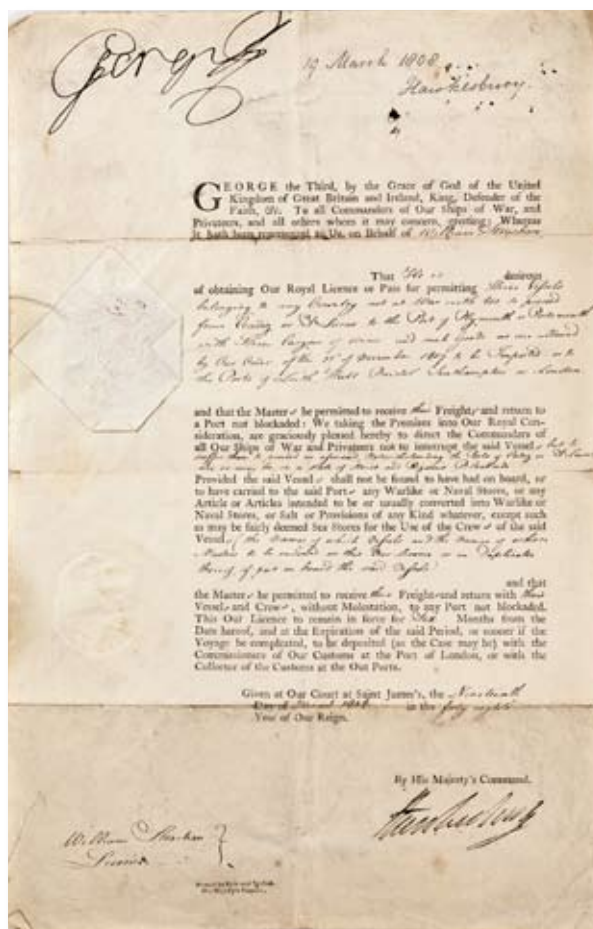 George R
19 March 1808
Hawkesbury.
GEORGE the Third, by the Grace of God of the United
Kingdom of Great Britain and Ireland, King, Defender of the
Faith, &c. To all Commanders of Our Ships of War, and
Privateers, and all others whom it may concern, greeting: Whereas
it hath been represented to Us, on Behalf of William
That He is desirous
of obtaining Our Royal Licence or Pass for permitting Three Vessels
belonging to any Country not at War with Us to proceed
from or to the Port of Plymouth or Portsmouth
with Cargoes of and such goods as are allowed
by Our Order of the of December 1807 to be Imported into
the Ports of Leith Hull Bristol Southampton or London
and that the Masters be permitted to receive their Freights and return to
a Port not blockaded: We taking the Premises into Our Royal Con-
sideration, are graciously pleased hereby to direct the Commanders of
all Our Ships of War and Privateers not to interrupt the said Vessels but to
Provided the said Vessels shall not be found to have had on board, or
to have carried to the said Ports any Warlike or Naval Stores, or any
Article or Articles intended to be or usually converted into Warlike or
Naval Stores, or Salt or Provisions of any Kind whatever, except such
as may be fairly deemed Sea Stores for the Use of the Crews of the said
Vessels, (the Names of which Vessels and the Names of whose
Masters to be endorsed on this Our Licence or on Duplicates
thereof if put on board the said Vessels)
and that
the Masters be permitted to receive their Freights and return with their
Vessels and Crews, without Molestation, to any Port not blockaded.
This Our Licence to remain in force for Six Months from the
Date hereof, and at the Expiration of the said Period, or sooner if the
Voyage be compleated, to be deposited (as the Case may be) with the
Commissioners of Our Customs at the Port of London, or with the
Collector of the Customs at the Out Ports.
Given at Our Court at Saint James's, the Nineteenth
Day of March 1808 in the forty eighth
Year of Our Reign.
By His Majesty's Command.
Hawkesbury
William
Licence